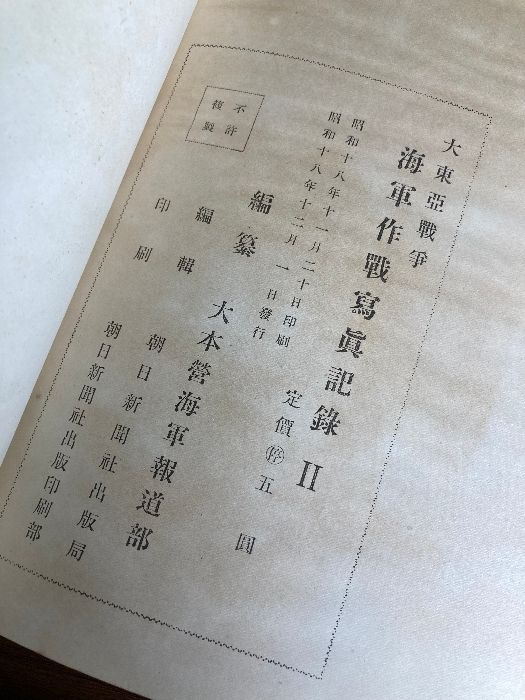 大東亞戰爭
海軍作戰寫眞記錄 II
昭和十八年十一月二十日印刷
昭和十八年十二月一日發行
定價㊡五圓
不許
複製
編纂 大本營海軍報道部
編輯 朝日新聞社出版局
印刷 朝日新聞社出版印刷部